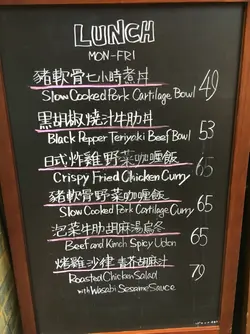 LUNCH
MON-FRI
豬軟骨七小時煮丼 49
Slow Cooked Pork Cartilage Bowl
黑胡椒燒汁牛肋丼 53
Black Pepper Teriyaki Beef Bowl
日式炸雞野菜咖喱飯 65
Crispy Fried Chicken Curry
豬軟骨野菜咖喱飯 65
Slow Cooked Pork Cartilage Curry
泡菜牛肋胡麻湯烏冬 65
Beef and Kimchi Spicy Udon
烤雞沙律 胡麻汁 79
Roasted Chicken Salad
with Wasabi Sesame Sauce